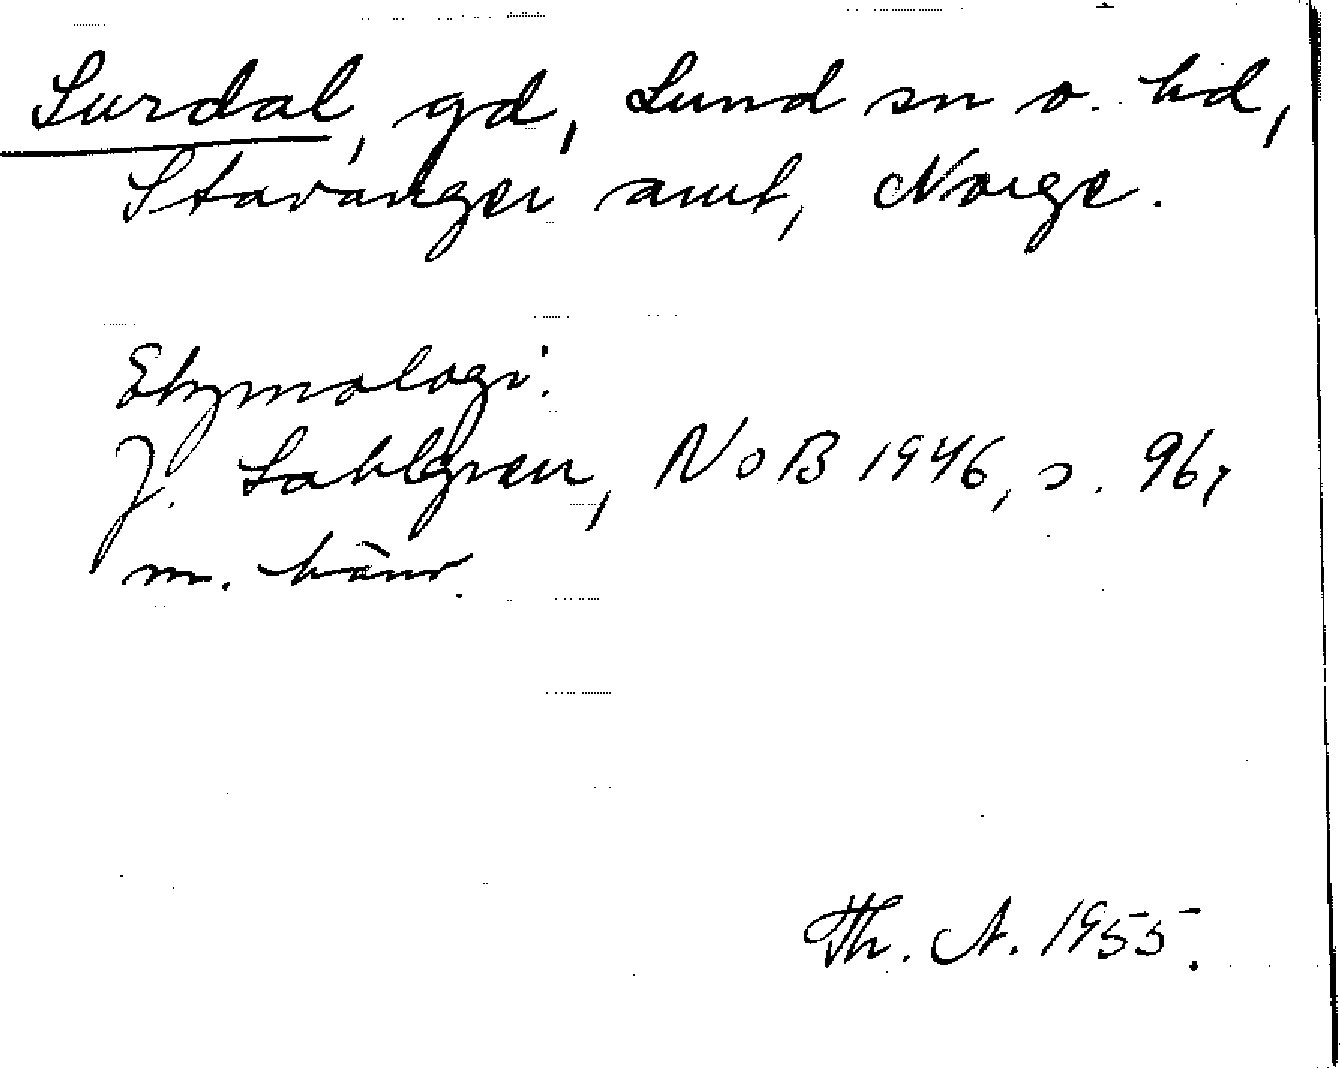 Surdal, gd, Lund sn o. hd,
Stavanger amt, Norge.
Etymologi:
J. Sahlgren, NoB 1946, s. 96,
m. hänv.
Th. A. 1955.